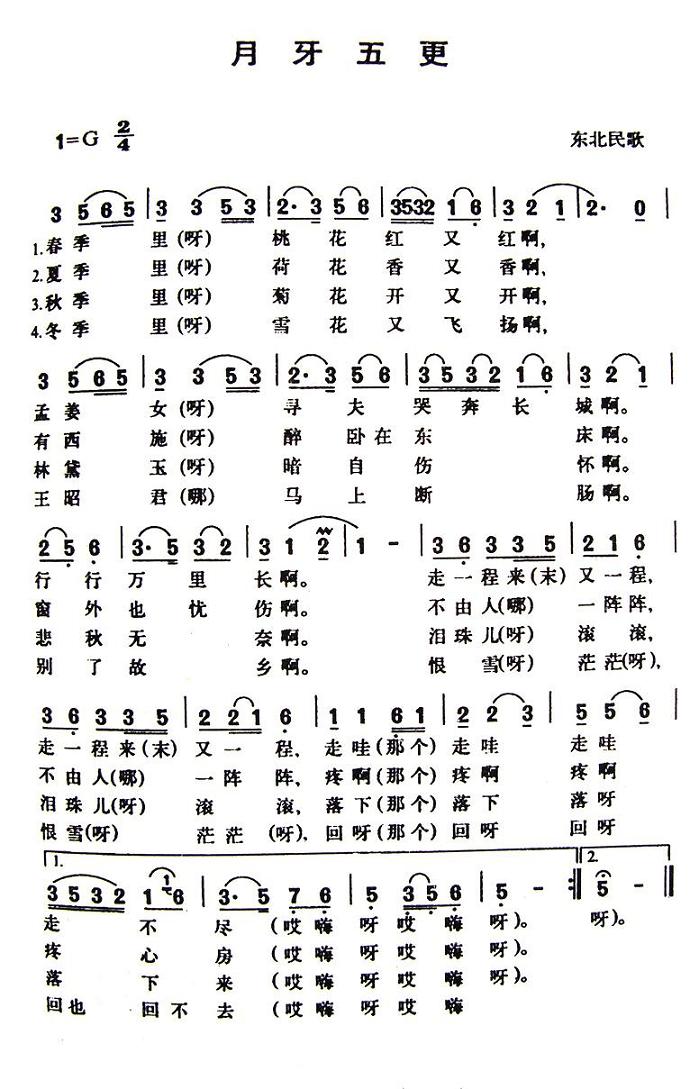 月牙五更
1=G 2/4
东北民歌
3 5 6 5 | 3 3 3 5 3 | 2· 3 5 6 | 3532 1 6 | 3 2 1 | 2· 0 |
1.春季 里(呀) 桃花红又红啊,
2.夏季 里(呀) 荷花香又香啊,
3.秋季 里(呀) 菊花开又开啊,
4.冬季 里(呀) 雪花又飞扬啊,
3 5 6 5 | 3 3 5 3 | 2· 3 5 6 | 3 5 3 2 1 6 | 3 2 1 |
孟姜女(呀) 寻夫哭奔长城啊。
有西施(呀) 醉卧在东床啊。
林黛玉(呀) 暗自伤怀啊。
王昭君(哪) 马上断肠啊。
2 5 6 | 3· 5 3 2 | 3 1 2 | 1 - | 3 6 3 3 5 | 2 1 6 |
行行万里长啊。 走一程来(末)又一程,
窗外也忧伤啊。 不由人(哪)一阵阵,
悲秋无奈啊。 泪珠儿(呀)滚滚,
别了故乡啊。 恨雪(呀)茫茫(呀),
3 6 3 3 5 | 2 2 1 6 | 1 1 6 1 | 2 3 2 | 5 5 6 |
走一程来(末)又一程, 走哇(那个)走哇 走哇
不由人(哪)一阵阵, 疼啊(那个)疼啊 疼啊
泪珠儿(呀)滚滚, 落下(那个)落下 落呀
恨雪(呀)茫茫(呀), 回呀(那个)回呀 回呀
1. 2.
3 5 3 2 1 1 6 | 3· 5 7 6 | 5 3 5 6 | 5 - :‖ 5 - ‖
走不尽(哎嗨呀哎嗨呀)。 呀)。
疼心房(哎嗨呀哎嗨呀)。
落下来(哎嗨呀哎嗨呀)。
回也回不去(哎嗨呀哎嗨